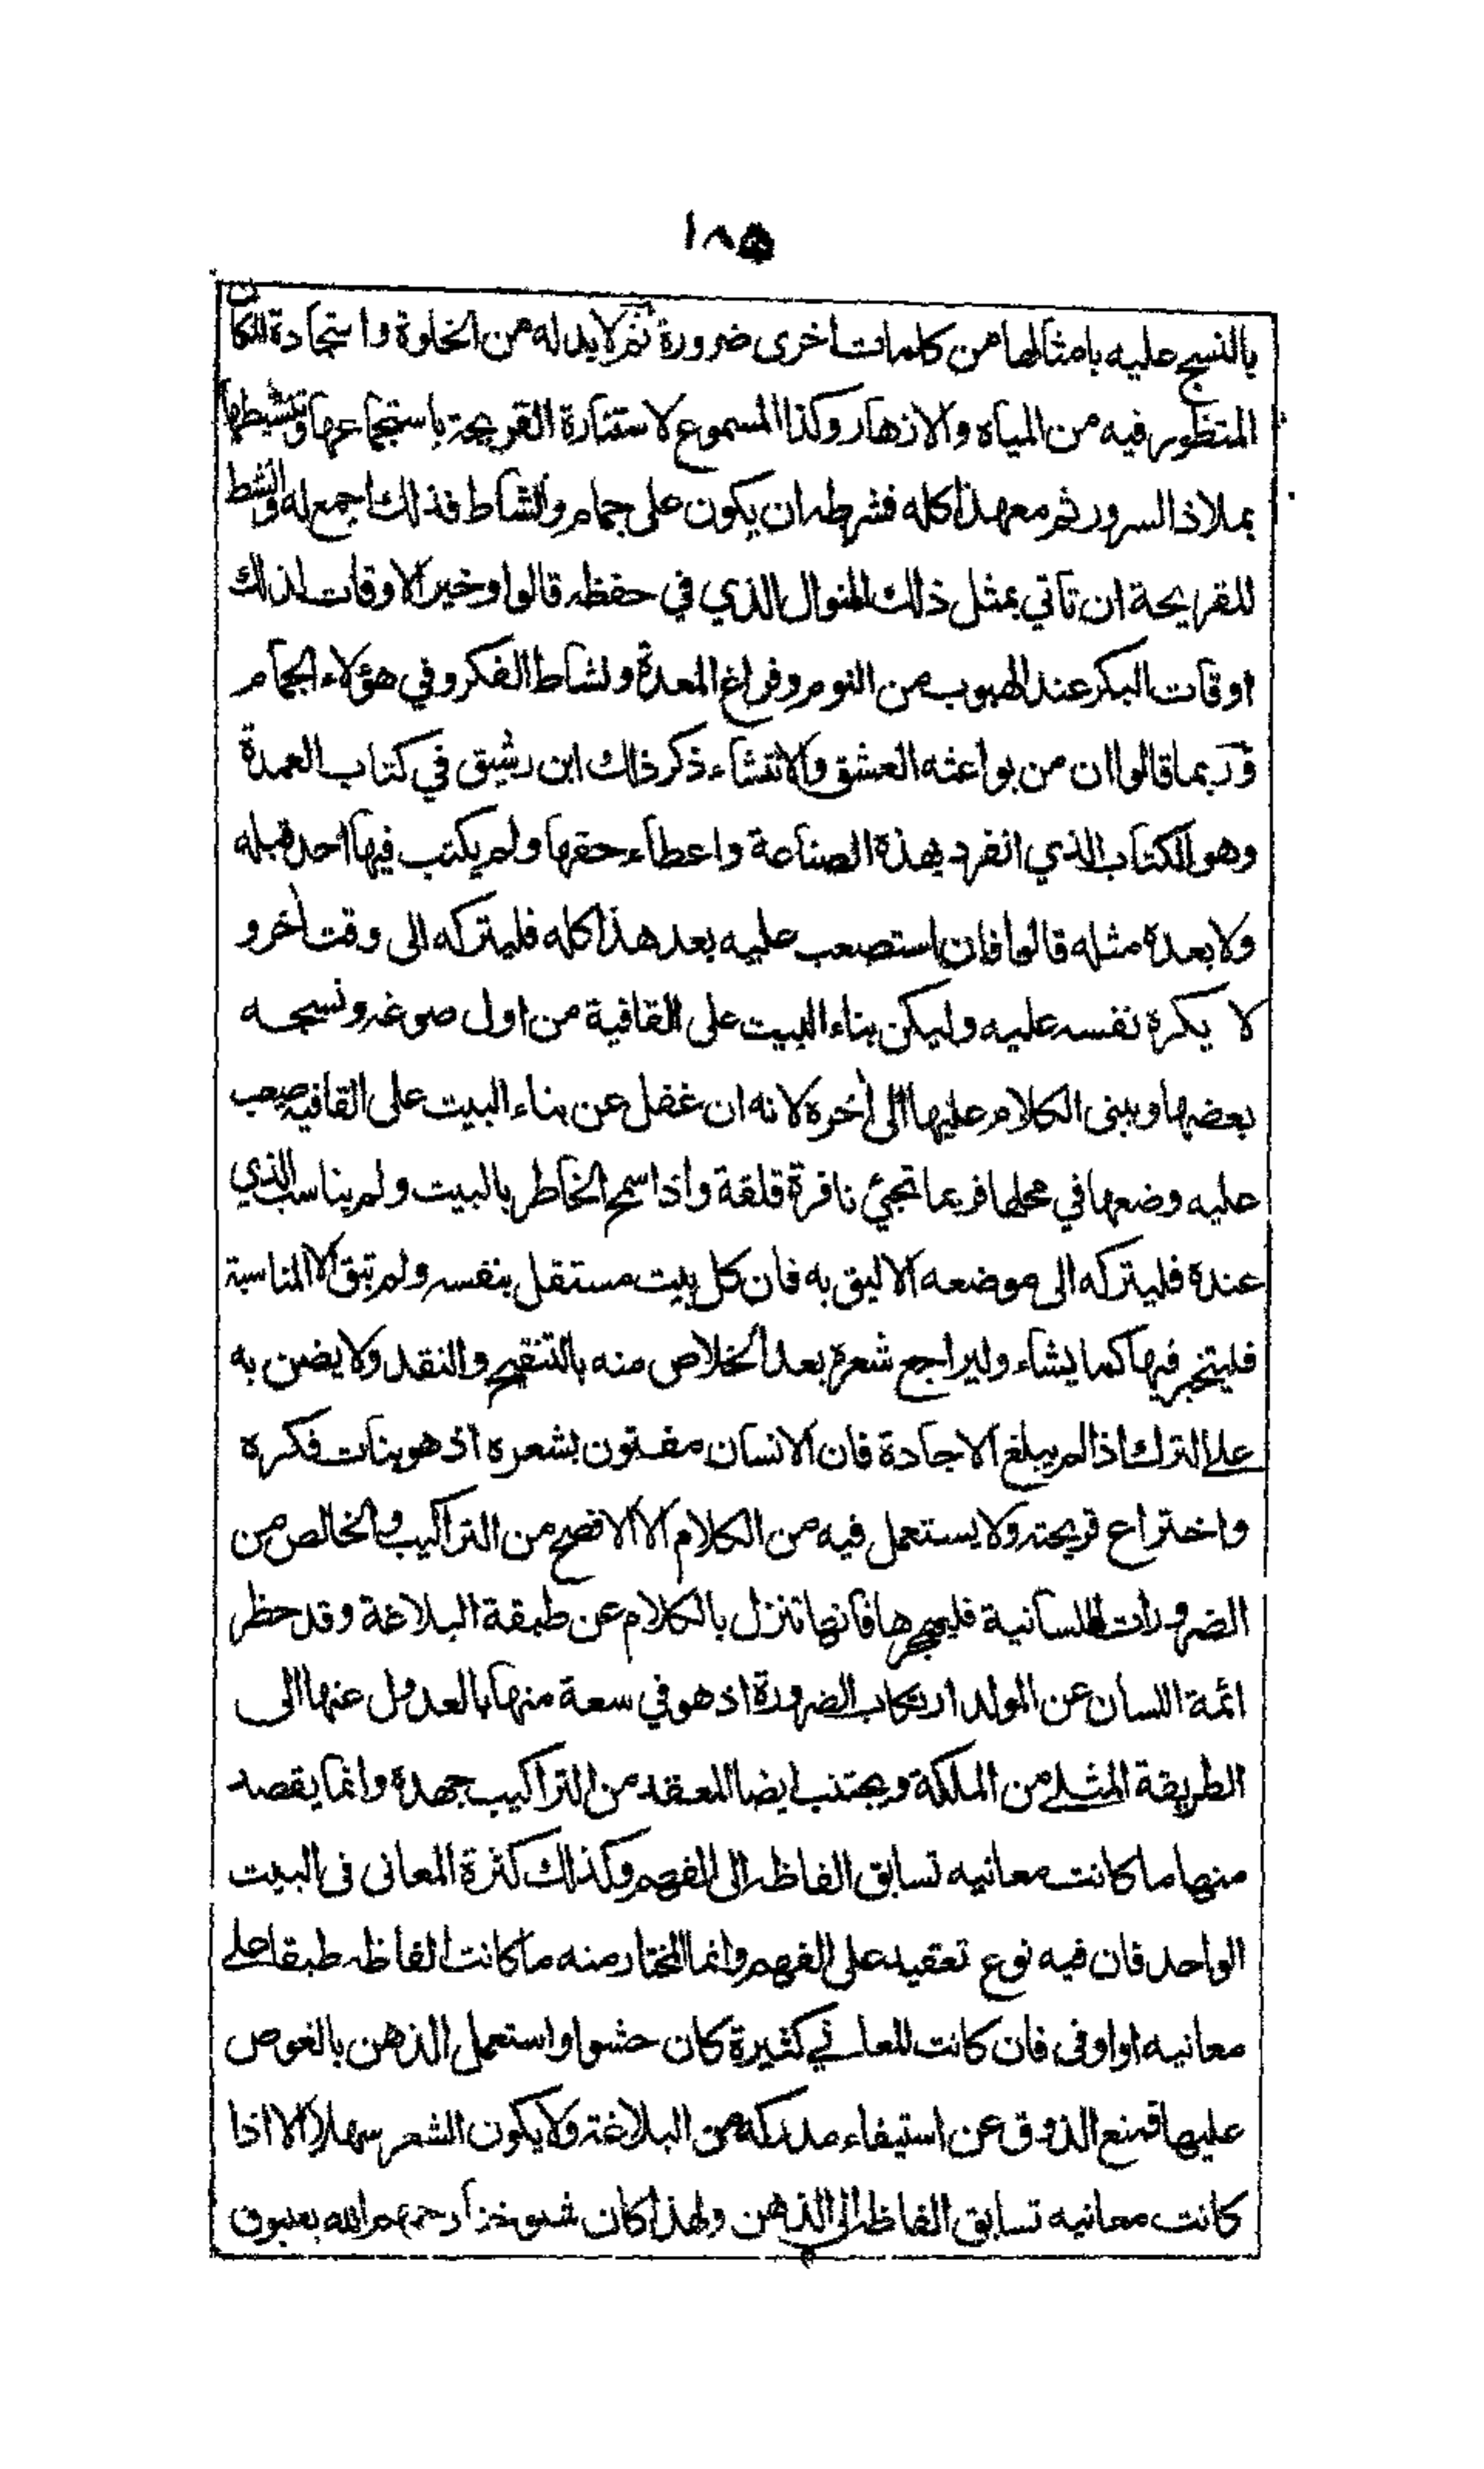 ١٨٥
بالنسج عليه بامثالها من كلمات اخرى ضرورة ثم لا بد له من الخلوة واستجادة المكان
المنظور فيه من المياه والازهار وكذا المسموع لاستنارة القريحة باستجماعها وتنشيطها
بملاذ السرور ثم مع هذا كله فشرطه ان يكون على جمام ونشاط فذلك اجمع له وانشط
للقريحة ان تاتي بمثل ذلك المنوال الذي في حفظه قالوا وخير الاوقات لذلك
اوقات البكر عند الهبوب من النوم وفراغ المعدة ونشاط الفكر وفي هؤلاء الجمام
وربما قالوا ان من بواعثه العشق والانتشاء ذكر ذلك ابن رشيق في كتاب العمدة
وهو الكتاب الذي انفرد بهذة الصناعة واعطاء حقها ولم يكتب فيها احد قبله
ولا بعدة مثله قالوا فان استصعب عليه بعد هذا كله فليتركه الى وقت أخر و
لا يكره نفسه عليه وليكن بناء البيت على القافية من اول صوغه ونسجه
بعضها ويبنى الكلام عليها الى أخره لانه ان غفل عن بناء البيت على القافيه صعب
عليه وضعها في محلها فربما تجئ نافرة قلقة واذا سمح الخاطر بالبيت ولم يناسب الذي
عندة فليتركه الى موضعه الاليق به فان كل بيت مستقل بنفسه ولم تبق الا المناسبة
فليتخير فيها كما يشاء وليراجع شعره بعد الخلاص منه بالتنقيح والنقد ولا يضن به
على الترك اذا لم يبلغ الاجادة فان الانسان مفتون بشعره اذ هو بنات فكره
واختراع قريحته ولا يستعمل فيه من الكلام الا الافصح من التراكيب والخالص من
الضرورات اللسانية فليهجرها فانها تنزل بالكلام عن طبقة البلاغة وقد حظر
ائمة اللسان عن المولد ارتكاب الضرورة اذ هو في سعة منها بالعدول عنها الى
الطريقة المثلى من الملكة ويجتنب ايضا المعقد من التراكيب جهدة وانما يقصد
منها ما كانت معانيه تسابق الفاظه الى الفهم وكذلك كثرة المعانى فى البيت
الواحد فان فيه نوع تعقيد على الفهم وانما المختار منه ما كانت الفاظه طبقا على
معانيه او اوفى فان كانت المعاني كثيرة كان حشوا واستعمل الذهن بالغوص
عليها فمنع الذوق عن استيفاء مدركه من البلاغة ولا يكون الشعر سهلا الا اذا
كانت معانيه تسابق الفاظه الى الذهن ولهذا كان شيوخنا رحمهم الله يعيبون